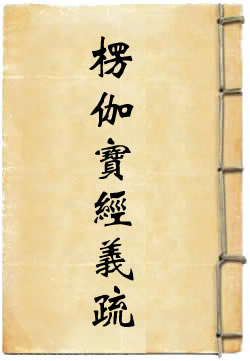 楞伽寶經義疏